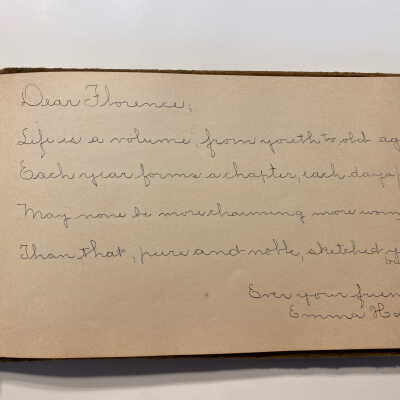 Dear Florence;
Life is a volume, from youth to old
Each year forms a chapter, each day a
May none be more charming more
Than that, pure and noble, sketched
Ever your
Emma